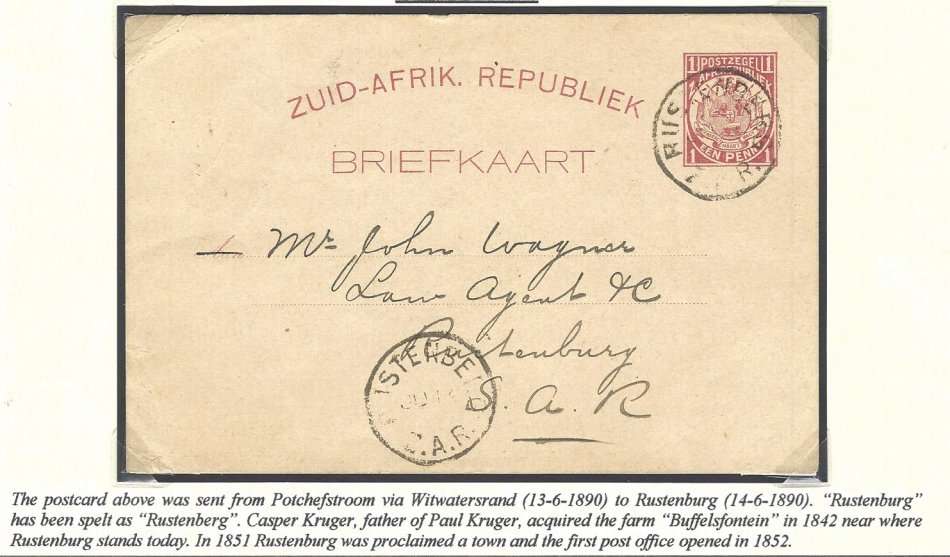 ZUID-AFRIK. REPUBLIEK
1 POSTZEGEL 1
BRIEFKAART
1 EEN PENNY 1
RUS
Z. A. R.
Mr John Wagner
Law Agent &C
Rustenburg
S. A. R
USTENBE
Z.A.R.
The postcard above was sent from Potchefstroom via Witwatersrand (13-6-1890) to Rustenburg (14-6-1890). “Rustenburg”
has been spelt as “Rustenberg”. Casper Kruger, father of Paul Kruger, acquired the farm “Buffelsfontein” in 1842 near where
Rustenburg stands today. In 1851 Rustenburg was proclaimed a town and the first post office opened in 1852.